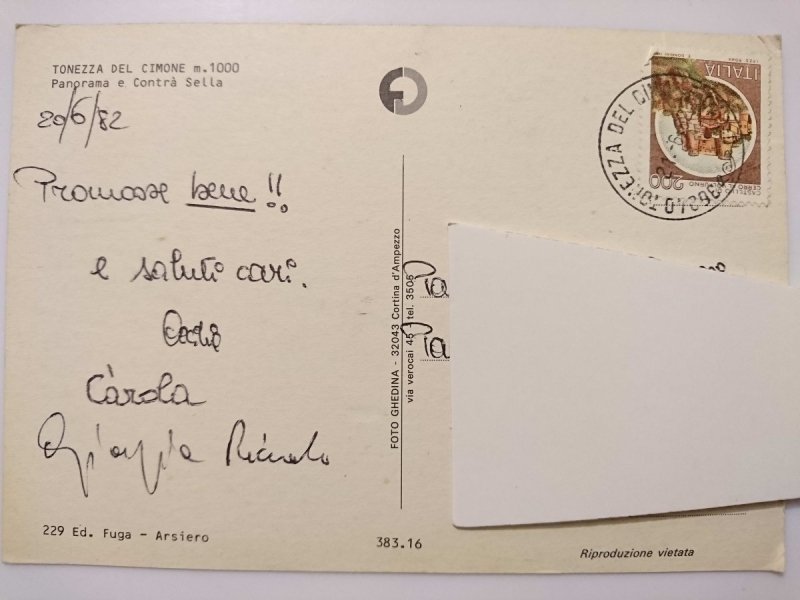 TONEZZA DEL CIMONE m.1000
Panorama e Contrà Sella
20/6/82
Promosse bene!!
e saluti cari.
Càrola
Giorgia
229 Ed. Fuga - Arsiero
FOTO GHEDINA - 32043 Cortina d'Ampezzo
via verocai 45 tel. 3505
383.16
ITALIA
200
CASTELLO
CERRO AL VOLTURNO
TONEZZA DEL CIM
36040
Pia
Pia
Riproduzione vietata